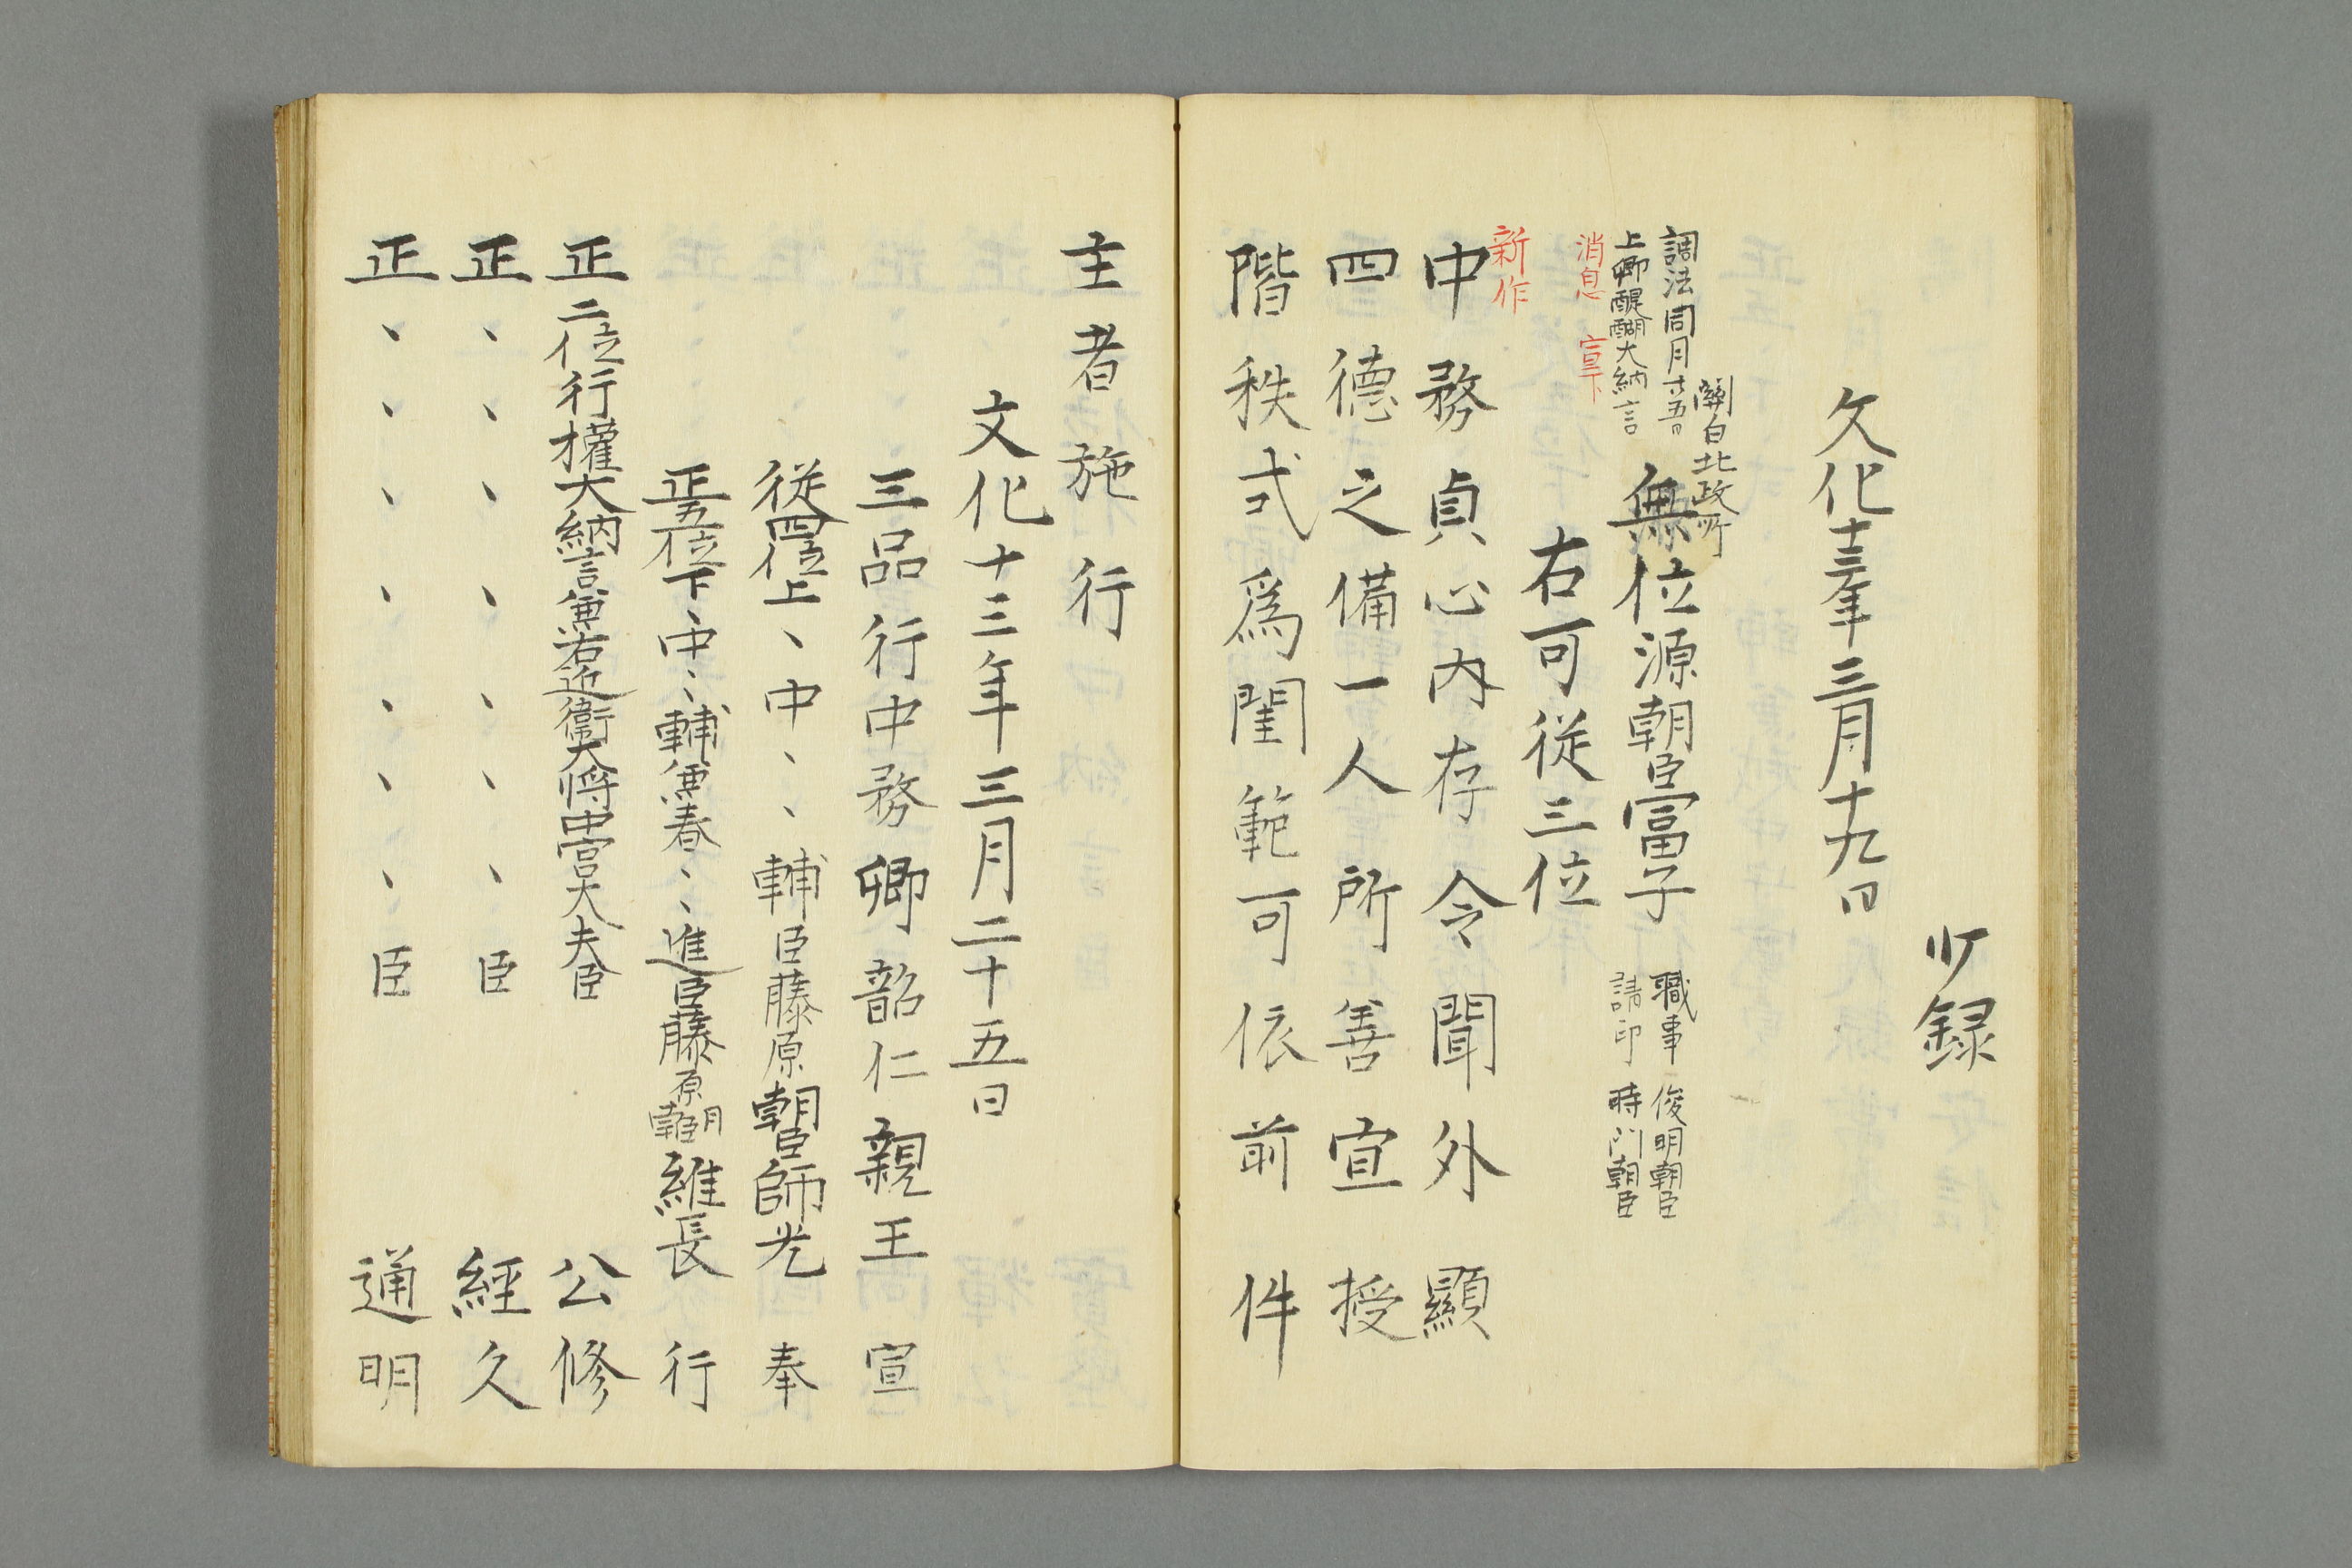 少録
文化十三年三月十九日
關白北政所
調法同月廿五日
上卿醍醐大納言
消息 宣下
無位源朝臣富子
職事 俊明朝臣
請印 時門朝臣
右可從三位
新作
中務貞心内存令聞外顯
四德之備一人所善宣授
階秩式爲閨範可依前件
主者施行
文化十三年三月二十五日
三品行中務卿韶仁親王 宣
從四位上、中、、輔臣藤原朝臣師光 奉
正五位下、中、、輔兼春、、進臣藤原朝臣維長 行
正二位行權大納言兼右近衞大將中宮大夫臣 公修
正、、、、、、、臣 經久
正、、、、、、、臣 通明